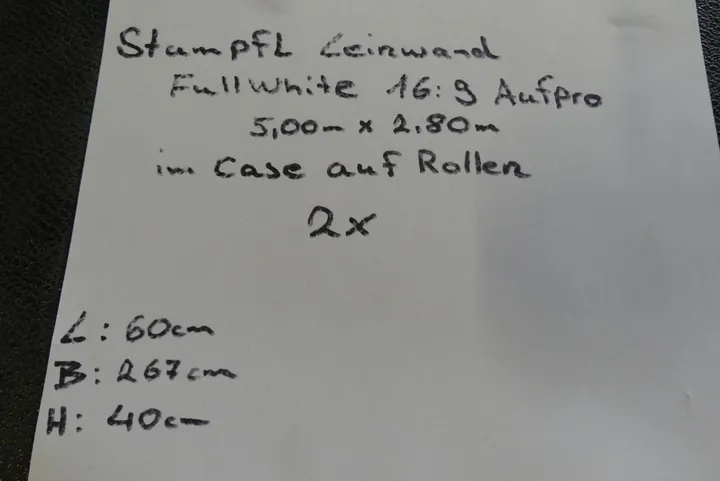 Stumpfl Leinwand
FullWhite 16:9 Aufpro
5,00m x 2.80m
im Case auf Rollen
2x
L: 60cm
B: 267cm
H: 40cm